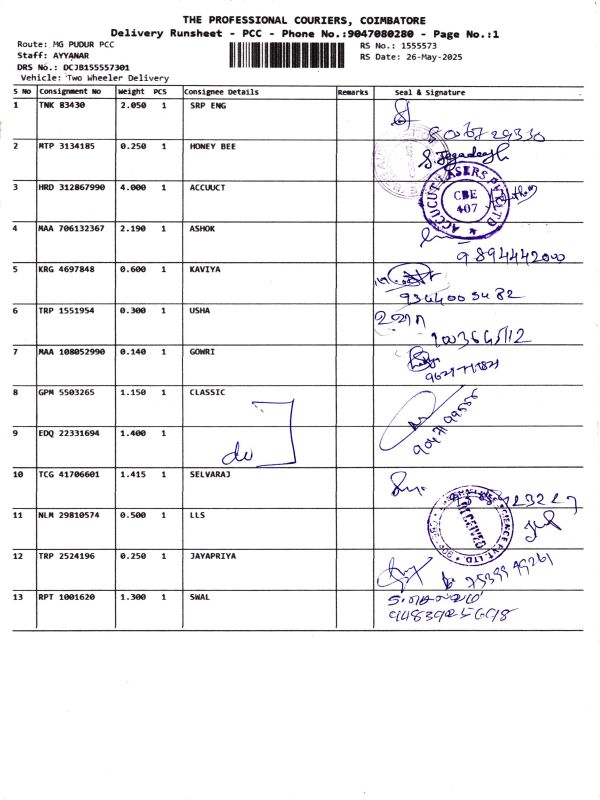 THE PROFESSIONAL COURIERS, COIMBATORE
Delivery Runsheet - PCC - Phone No.:9047080280 - Page No.:1
Route: MG PUDUR PCC
RS No.: 1555573
Staff: AYYANAR
RS Date: 26-May-2025
DRS No.: DCJB155557301
Vehicle: Two Wheeler Delivery
S No Consignment No Weight PCS Consignee Details Remarks Seal & Signature
1 TNK 83430 2.050 1 SRP ENG
2 MTP 3134185 0.250 1 HONEY BEE
S. Jegadeesh
3 HRD 312867990 4.000 1 ACCUUCT
ACCUCUT LASERS PVT LTD
CBE
407
4 MAA 706132367 2.190 1 ASHOK
9894442000
5 KRG 4697848 0.600 1 KAVIYA
9344005482
6 TRP 1551954 0.300 1 USHA
உஷா
7 MAA 108052990 0.140 1 GOWRI
8 GPM 5503265 1.150 1 CLASSIC
9 EDQ 22331694 1.400 1
do
10 TCG 41706601 1.415 1 SELVARAJ
11 NLM 29810574 0.500 1 LLS
RECEIVED
12 TRP 2524196 0.250 1 JAYAPRIYA
7539949261
13 RPT 1001620 1.300 1 SWAL